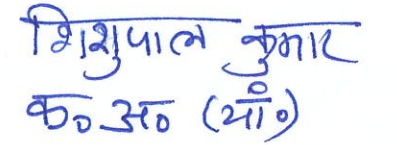 शिशुपाल कुमार
क० अ० (यां०)